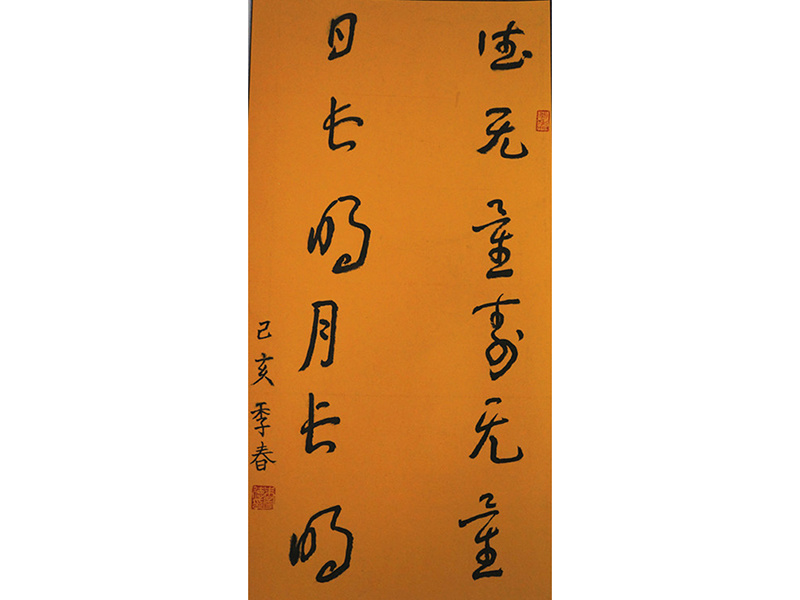 德无量寿无量
日长明月长明
己亥季春